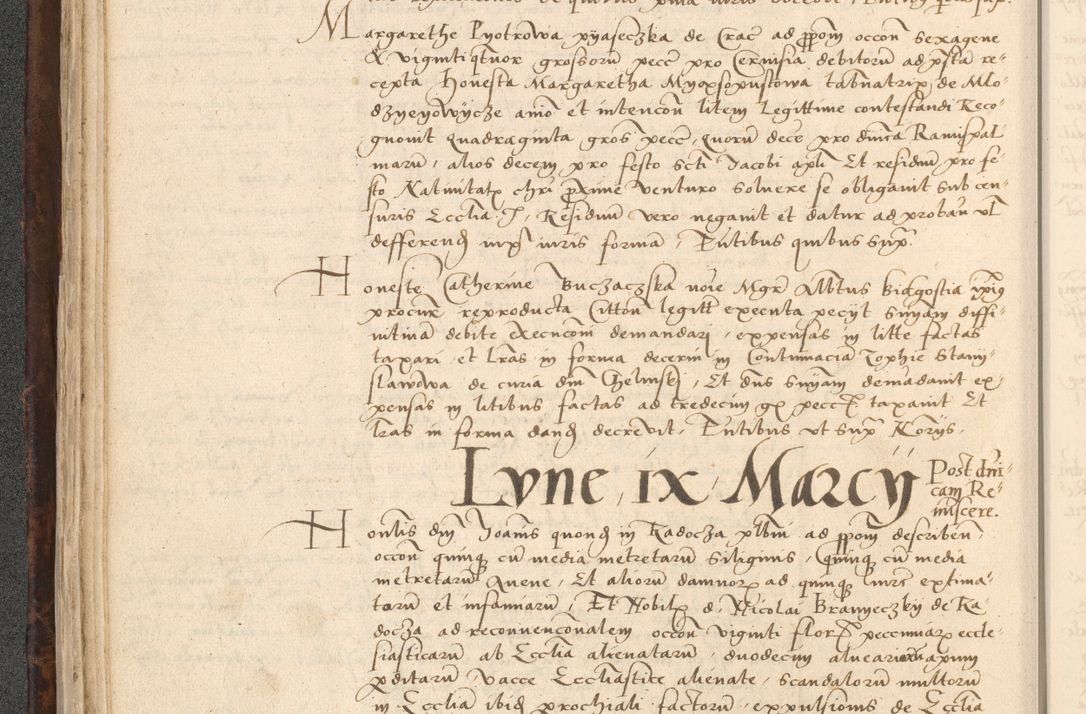 Margarethe Pyotrowa pyasseczka de Crac ad ppom occon sexagene
& vigintiqtuor grossorum pecc pro Cervisia debitorum ad psta re-
cepta Honesta Margaretha Myopsopustowa tabnatrix de Mlo-
dzyeyowycze animo et intencon litem Legittime contestandi Reco-
gnovit quadraginta gros pecc, quorum dece pro dnica Ramispal
marum, alios decem pro festo Scti Jacobi apli Et residuum pro fe-
sto Nativitatis chri proxime venturo solvere se obligavit sub cen-
suris Ecclia, Residuum vero negavit et datur ad proban vel
defferend iuris forma, Entibus quibus supra.
Honeste Catherine Buczaczska noie Mgr Albtus Biedgostia
procur reproducta Citton legitt executa pecyt Smam diffi-
nitivam debite execucon demandari, expensas in litte factas
taxari et Lras in forma decerni in Contumacia Zophie Stany-
slawowa de curia dni Chelmskj, Et dns Smam demadavit ex-
pensas in litibus factas ad tredecim gr pecc taxavit Et
lras in forma dand decrevit, Entibus ut supra Norijs.
Lvne, ix, Marcÿ Post dni-
cam Re-
miscere.
Honlis dni Joanis quond in Kadocza plbni ad ppom describen,
occon quinq cum media metretarum siliginis, Quinq cum media
metretarum Avene, Et aliorum damnorum ad quinq mrs extima-
tarum et infamiarum, Et Nobilis d. Nicolai Branyeczkij de Ka
docza ad reconvenconalem occon viginti flor pecuniarum eccle-
siasticarum ab Ecclia alienatarum, duodecim alvearium apum
perditarum vacce Ecclesiastice alienate, Scandalorum multorum
in Ecclia ibid prochiali factorum, expulsionis de Ecclia